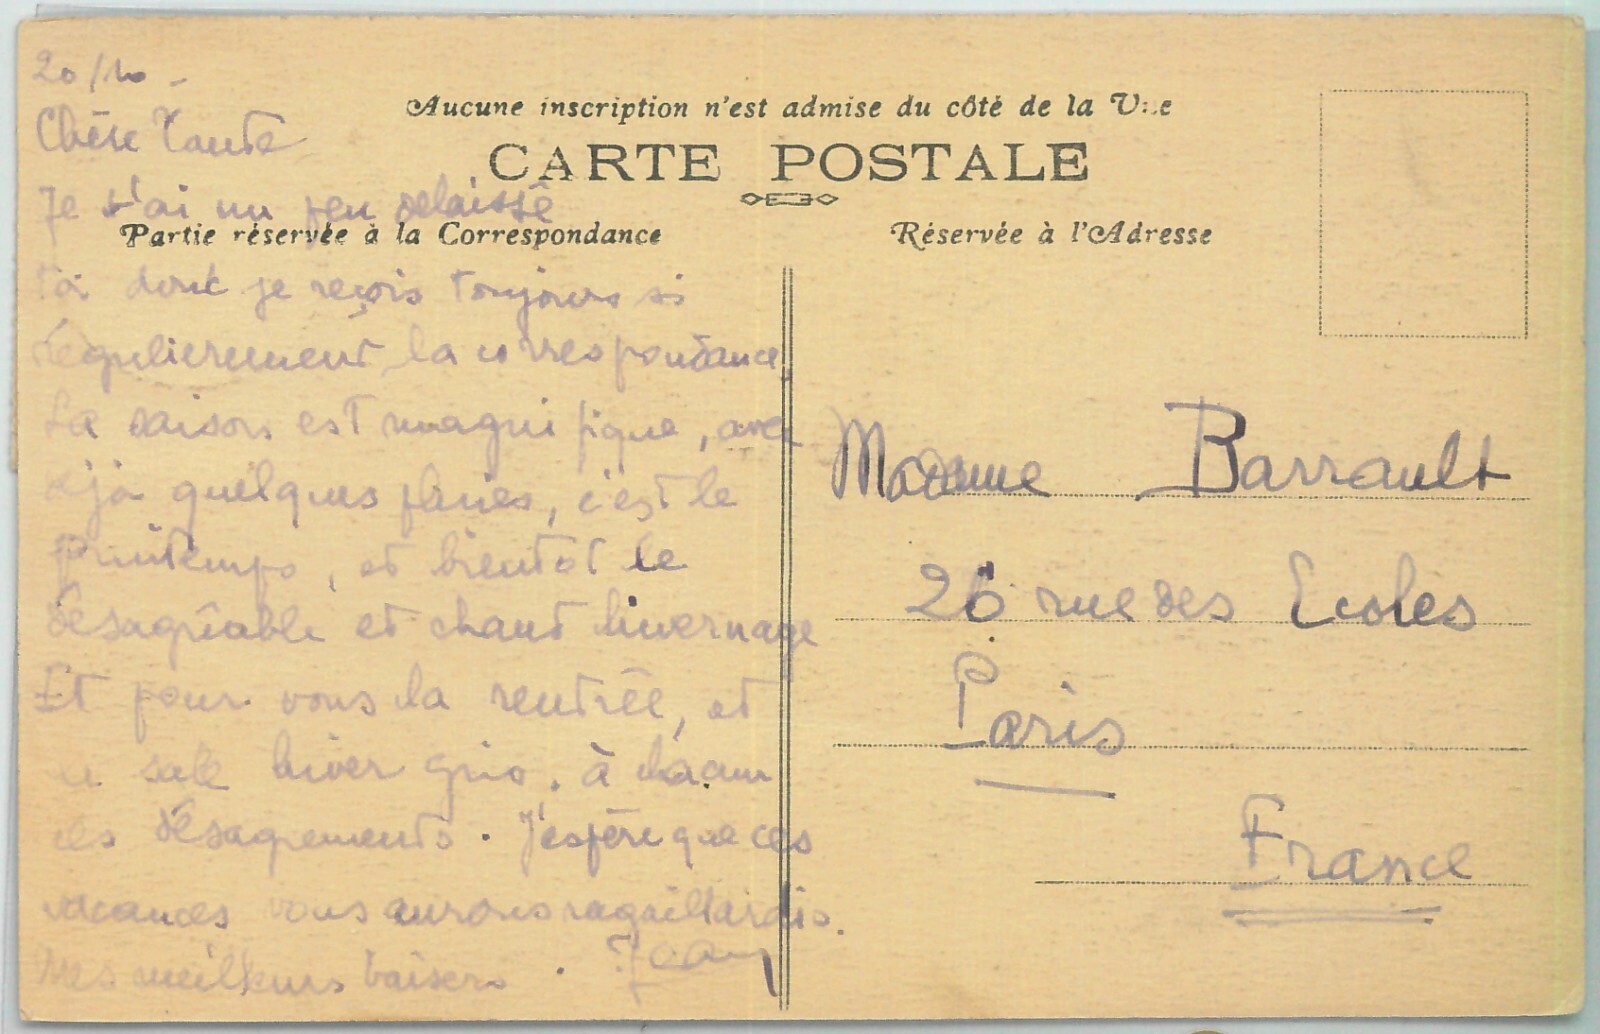 20/10 -
Chère Tante
Aucune inscription n'est admise du côté de la Vue
CARTE POSTALE
Je t'ai un peu delaissé
Partie réservée à la Correspondance
Réservée à l'Adresse
toi dont je reçois toujours si
régulierement la correspondance,
La saison est magnifique, avec
déjà quelques pluies, c'est le
Printemps, et bientot le
désagréable et chaud hivernage
Et pour vous la rentrée, et
le sale hiver gris. à chacun
ses désagrements. J'espère que ces
vacances vous aurons ragaillardis.
Mes meilleurs baisers. Jean
Madame Barrault
26 rue des Ecoles
Paris
France